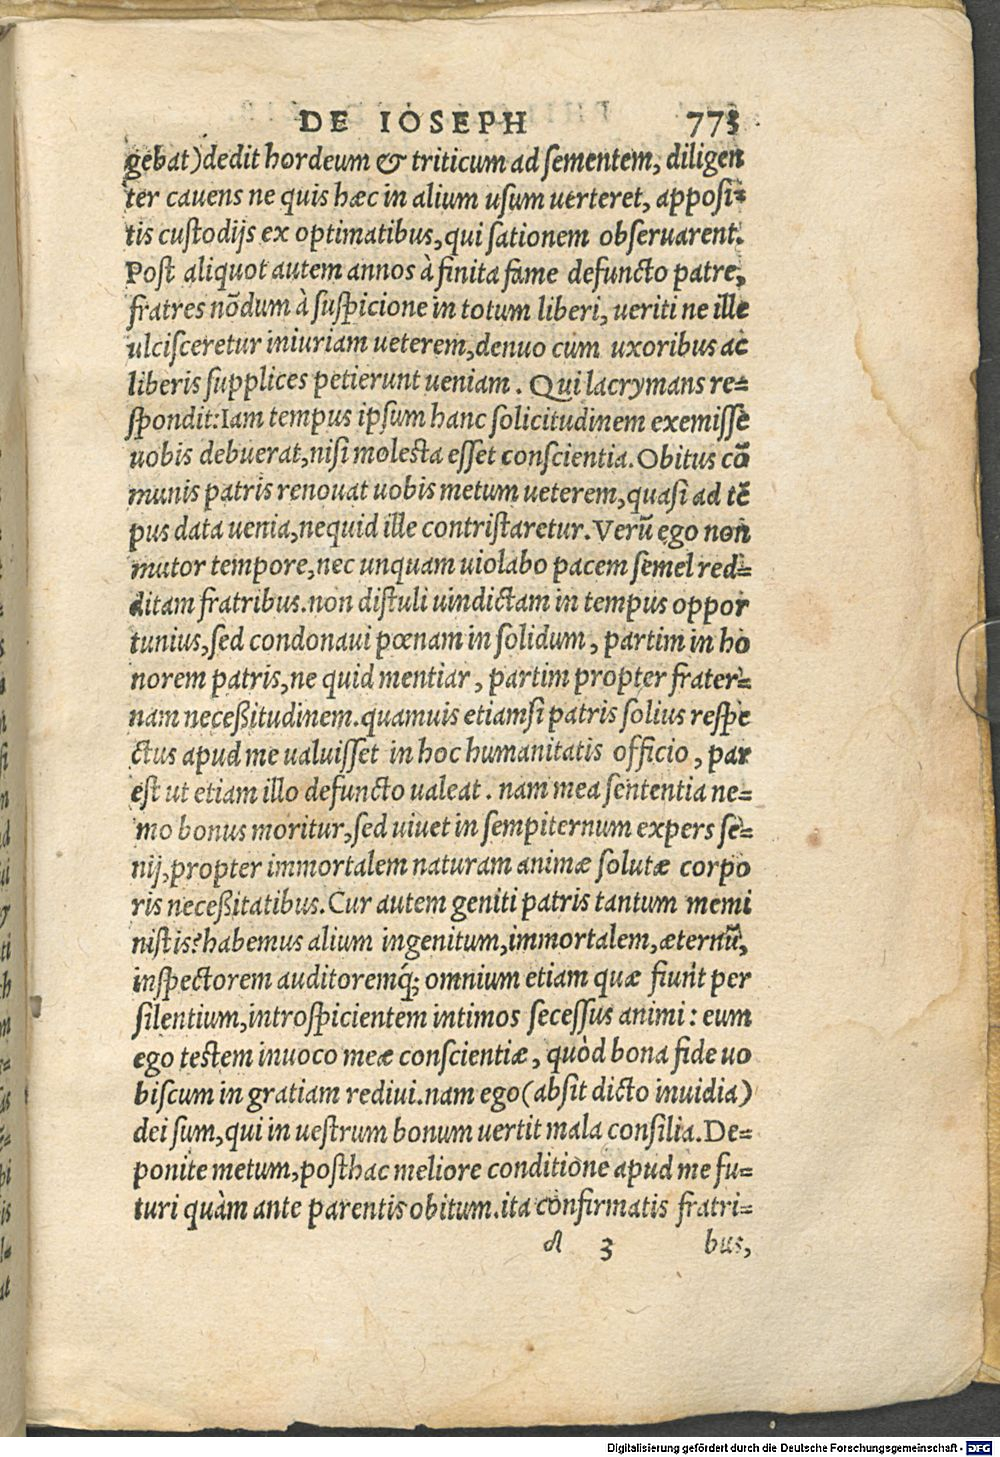 DE IOSEPH 773
gebat) dedit hordeum & triticum ad sementem, diligen
ter cauens ne quis hæc in alium usum uerteret, apposi=
tis custodijs ex optimatibus, qui sationem obseruarent.
Post aliquot autem annos à finita fame defuncto patre,
fratres nōdum à suspicione in totum liberi, ueriti ne ille
ulcisceretur iniuriam ueterem, denuo cum uxoribus ac
liberis supplices petierunt ueniam. Qui lacrymans re=
spondit: Iam tempus ipsum hanc solicitudinem exemisse
uobis debuerat, nisi molesta esset conscientia. Obitus cō
munis patris renouat uobis metum ueterem, quasi ad tē
pus data uenia, nequid ille contristaretur. Verū ego non
mutor tempore, nec unquam uiolabo pacem semel red=
ditam fratribus. non distuli uindictam in tempus oppor
tunius, sed condonaui pœnam in solidum, partim in ho
norem patris, ne quid mentiar, partim propter frater=
nam neceßitudinem. quamuis etiamsi patris solius respe
ctus apud me ualuisset in hoc humanitatis officio, par
est ut etiam illo defuncto ualeat. nam mea sententia ne=
mo bonus moritur, sed uiuet in sempiternum expers se=
nij, propter immortalem naturam animæ solutæ corpo
ris neceßitatibus. Cur autem geniti patris tantum memi
nistis? habemus alium ingenitum, immortalem, æternū,
inspectorem auditoremq́; omnium etiam quæ fiunt per
silentium, introspicientem intimos secessus animi: eum
ego testem inuoco meæ conscientiæ, quòd bona fide uo
biscum in gratiam rediui. nam ego (absit dicto inuidia)
dei sum, qui in uestrum bonum uertit mala consilia. De=
ponite metum, posthac meliore conditione apud me fu=
turi quàm ante parentis obitum. ita confirmatis fratri=
3 bus,
Digitalisierung gefördert durch die Deutsche Forschungsgemeinschaft - DFG